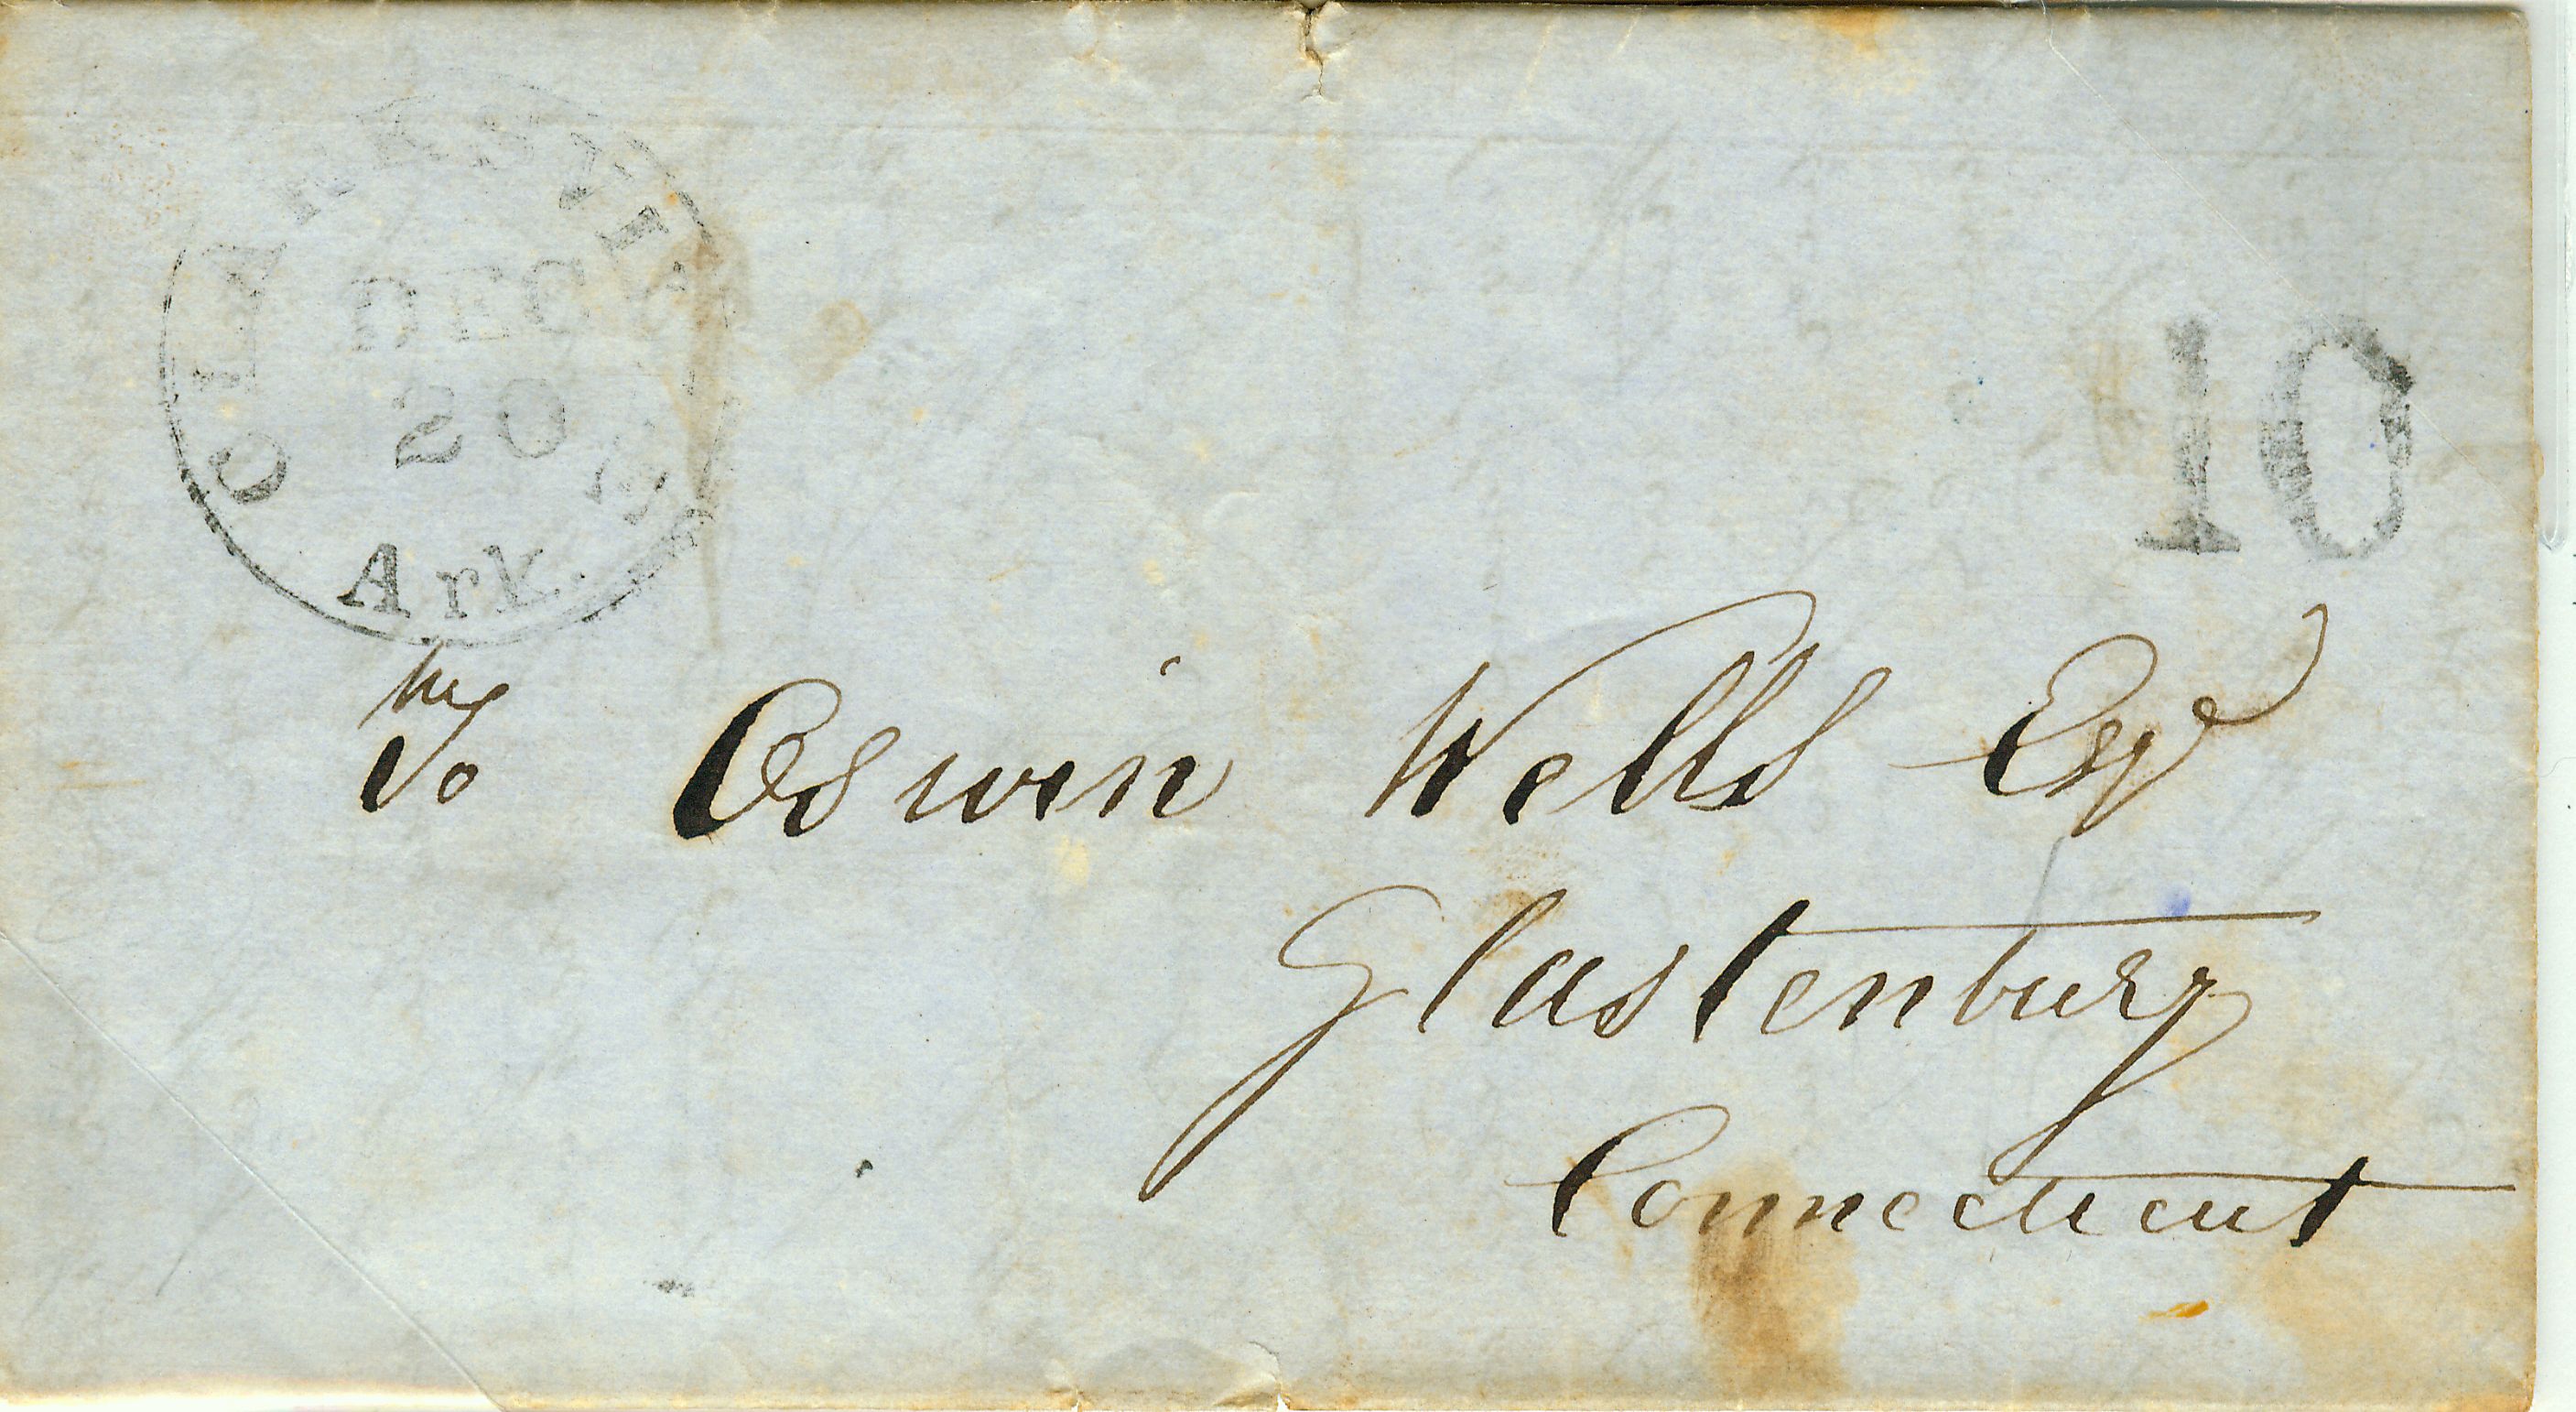 CLARKSVILLE
DEC
20
Ark.
10
To Oswin Wells Esq
Glastenbury
Connecticut